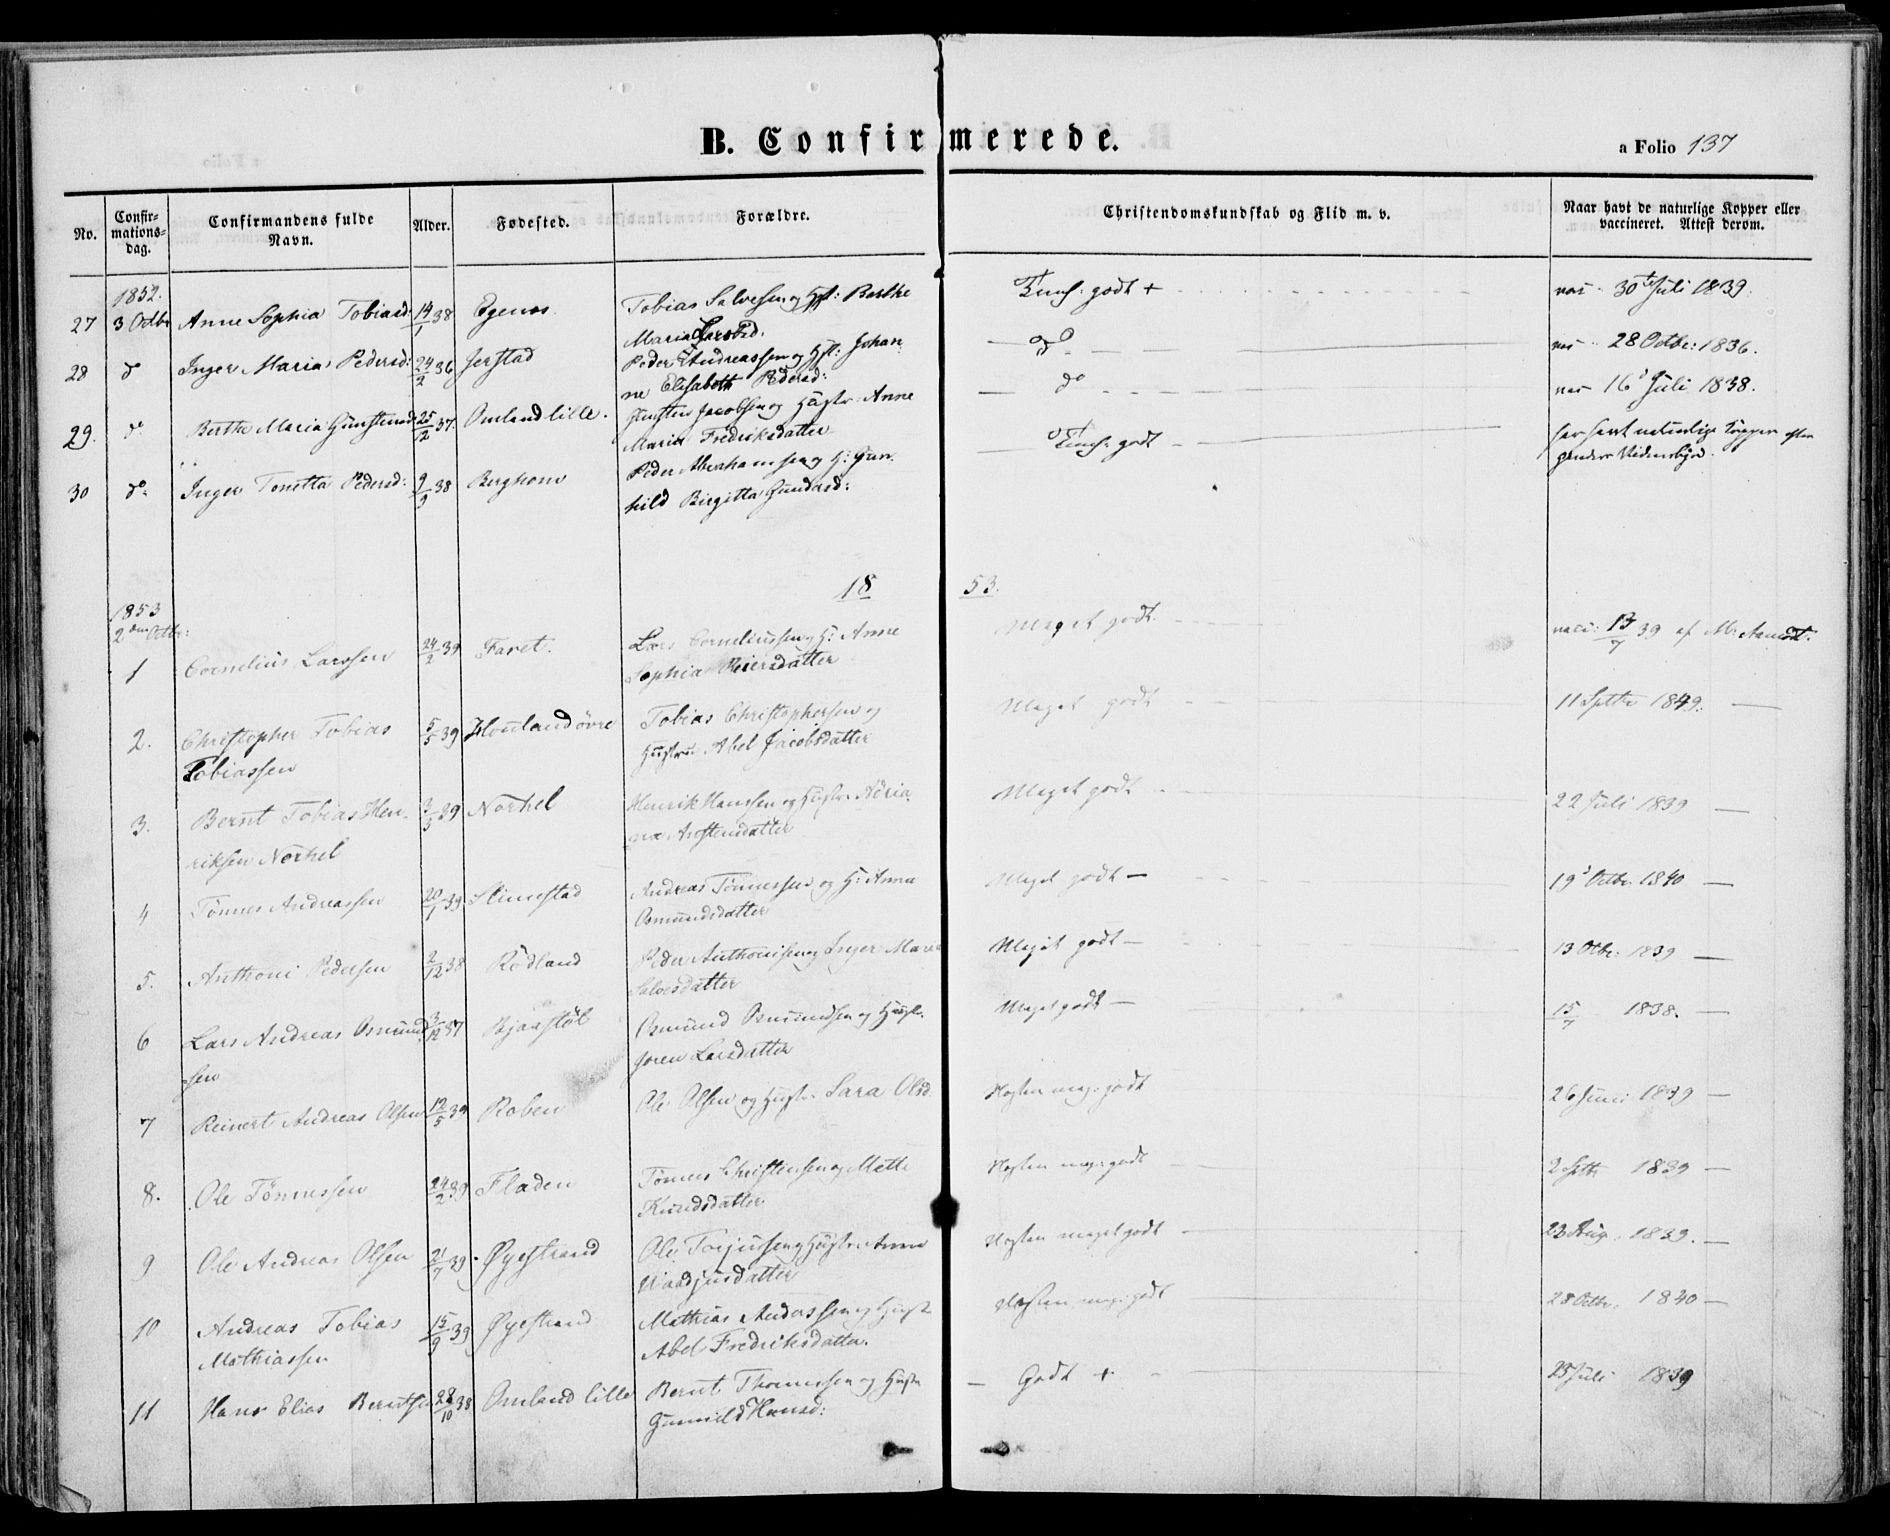 B. Confirmerede.
a Folio 137
No.
Confir-
mations-
dag.
Confirmandens fulde
Navn.
Alder.
Fødested.
Forældre.
Christendomskundskab og Flid m. v.
Naar havt de naturlige Kopper eller
vaccineret. Attest derom.
1852.
27 3 Octbr Anne Sophia Tobiasd: 14/1 38 Egenes Tobias Salvesen og Hst: Berthe
Maria godt + 30 Juli 1839.
28 do Inger Maria Pedersd: 24/2 36 Jerstad Peder Andreassen og Hst: Johan
ne Elisabeth Pedersd: do 28 Octbr: 1836.
29. do Berthe Maria Gunstensd 25/12 37. Omland lille. Gunsten Jacobsen og Hustr: Anne
Maria Fredriksdatter do 16 Juli 1838.
30 do Inger Tonetta Pedersd: 9/9 38 Berghom Peder Abrahamsen og H: Gun
hild Birgitta Gundersd: godt naturlige Kopper
1853.
1853
2den Octbr:
1 Cornelius Larssen 24/2 39 Faret. Lars Corneliussen og H: Anne
Sophia Reiersdatter Meget godt. vacc: 13/7 39 af M:
2. Christopher Tobias 5/5 39 Houland øvre Tobias Christophersen og
Tobiassen Hustru Abel Jacobsdatter Meget godt 11 Septbr 1849.
3. Bernt Tobias Hen- 3/5 39 Norhel Henrik Hanssen og Hustr: Adria
riksen Norhel na Meget godt 22 Juli 1839
4 Tønnes Andreassen 20/1 39 Stimestad Andreas Tønnessen og H: Anna
Osmundsdatter Meget godt 19 Octbr 1840
5. Anthoni Pedersen 2/12 38 Rødland Peder Anthonisen og Inger Maria
Salvesdatter Meget godt 13 Octbr: 1839
6 Lars Andreas Osmund 3/12 37 Bjørstøl Osmund Osmundsen og Hustr:
sen Joren Larsdatter Meget godt 15/7 1838.
7 Reinert Andreas Olsen 12/5 39 Roben Ole Olsen og Hustr: Sara Olsd. Næsten meg: godt 26 Juni 1839
8. Ole Tønnessen 24/2 39 Fladen Tønnes Christensen og Mette
Knudsdatter Næsten meg: godt 2 Septbr 1839
9 Ole Andreas Olsen 21/7 39. Øyestrand Ole Torjusen og Hustr: Anne
Næsten meget godt 23 Aug: 1839.
10 Andreas Tobias 15/9 39 Øyestrand Mathias Andersen og Hustr
Mathiassen Abel Fredriksdatter. Næsten meg: godt 28 Octbr: 1840
11 Hans Elias Berntsen 28/10 38 Omland lille Bernt Thomessen og Hustr
Gunnild Hansd: Godt + 25 Juli 1839